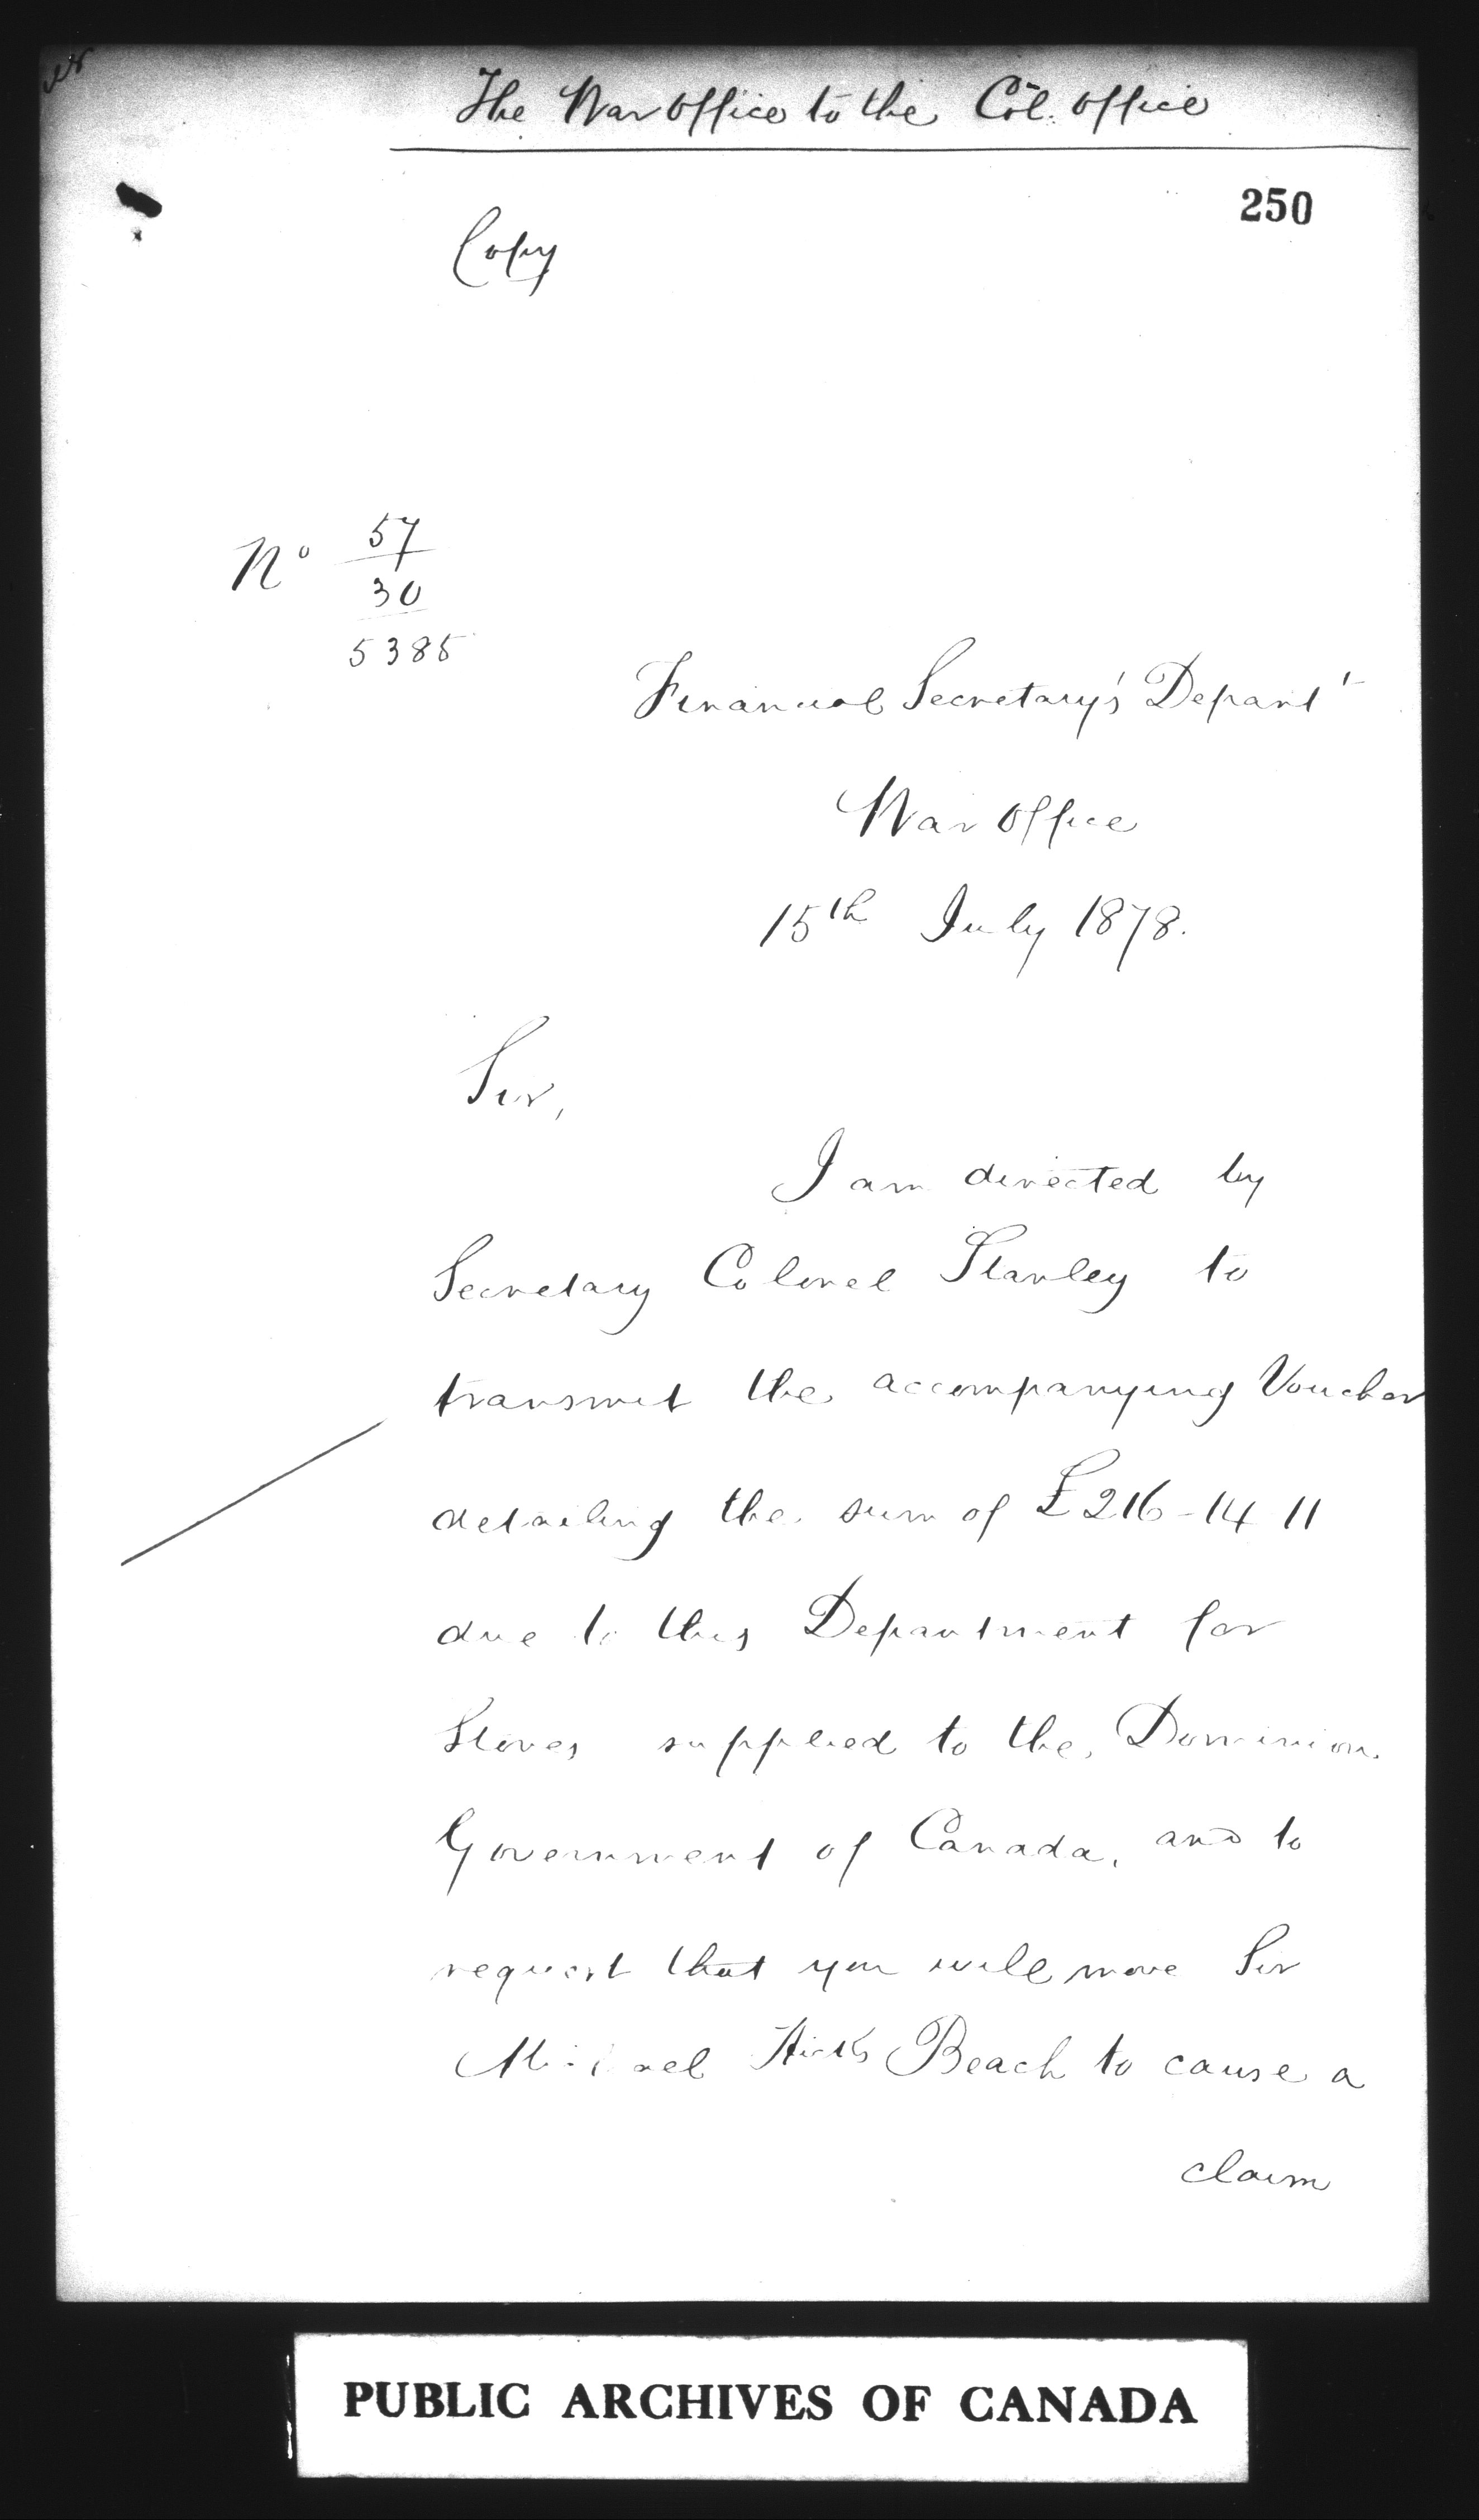 The War Office to the Col. Office
250
Copy
No 57
30
5385
Financial Secretary's Depart t
War Office
15th July 1878.
Sir,
I am directed by
Secretary Colonel Stanley to
transmit the accompanying Voucher
detailing the sum of £216-14 11
due to this Department for
Stores supplied to the Dominion
Government of Canada, and to
request that you will move Sir
Michael Hicks Beach to cause a
claim
PUBLIC ARCHIVES OF CANADA